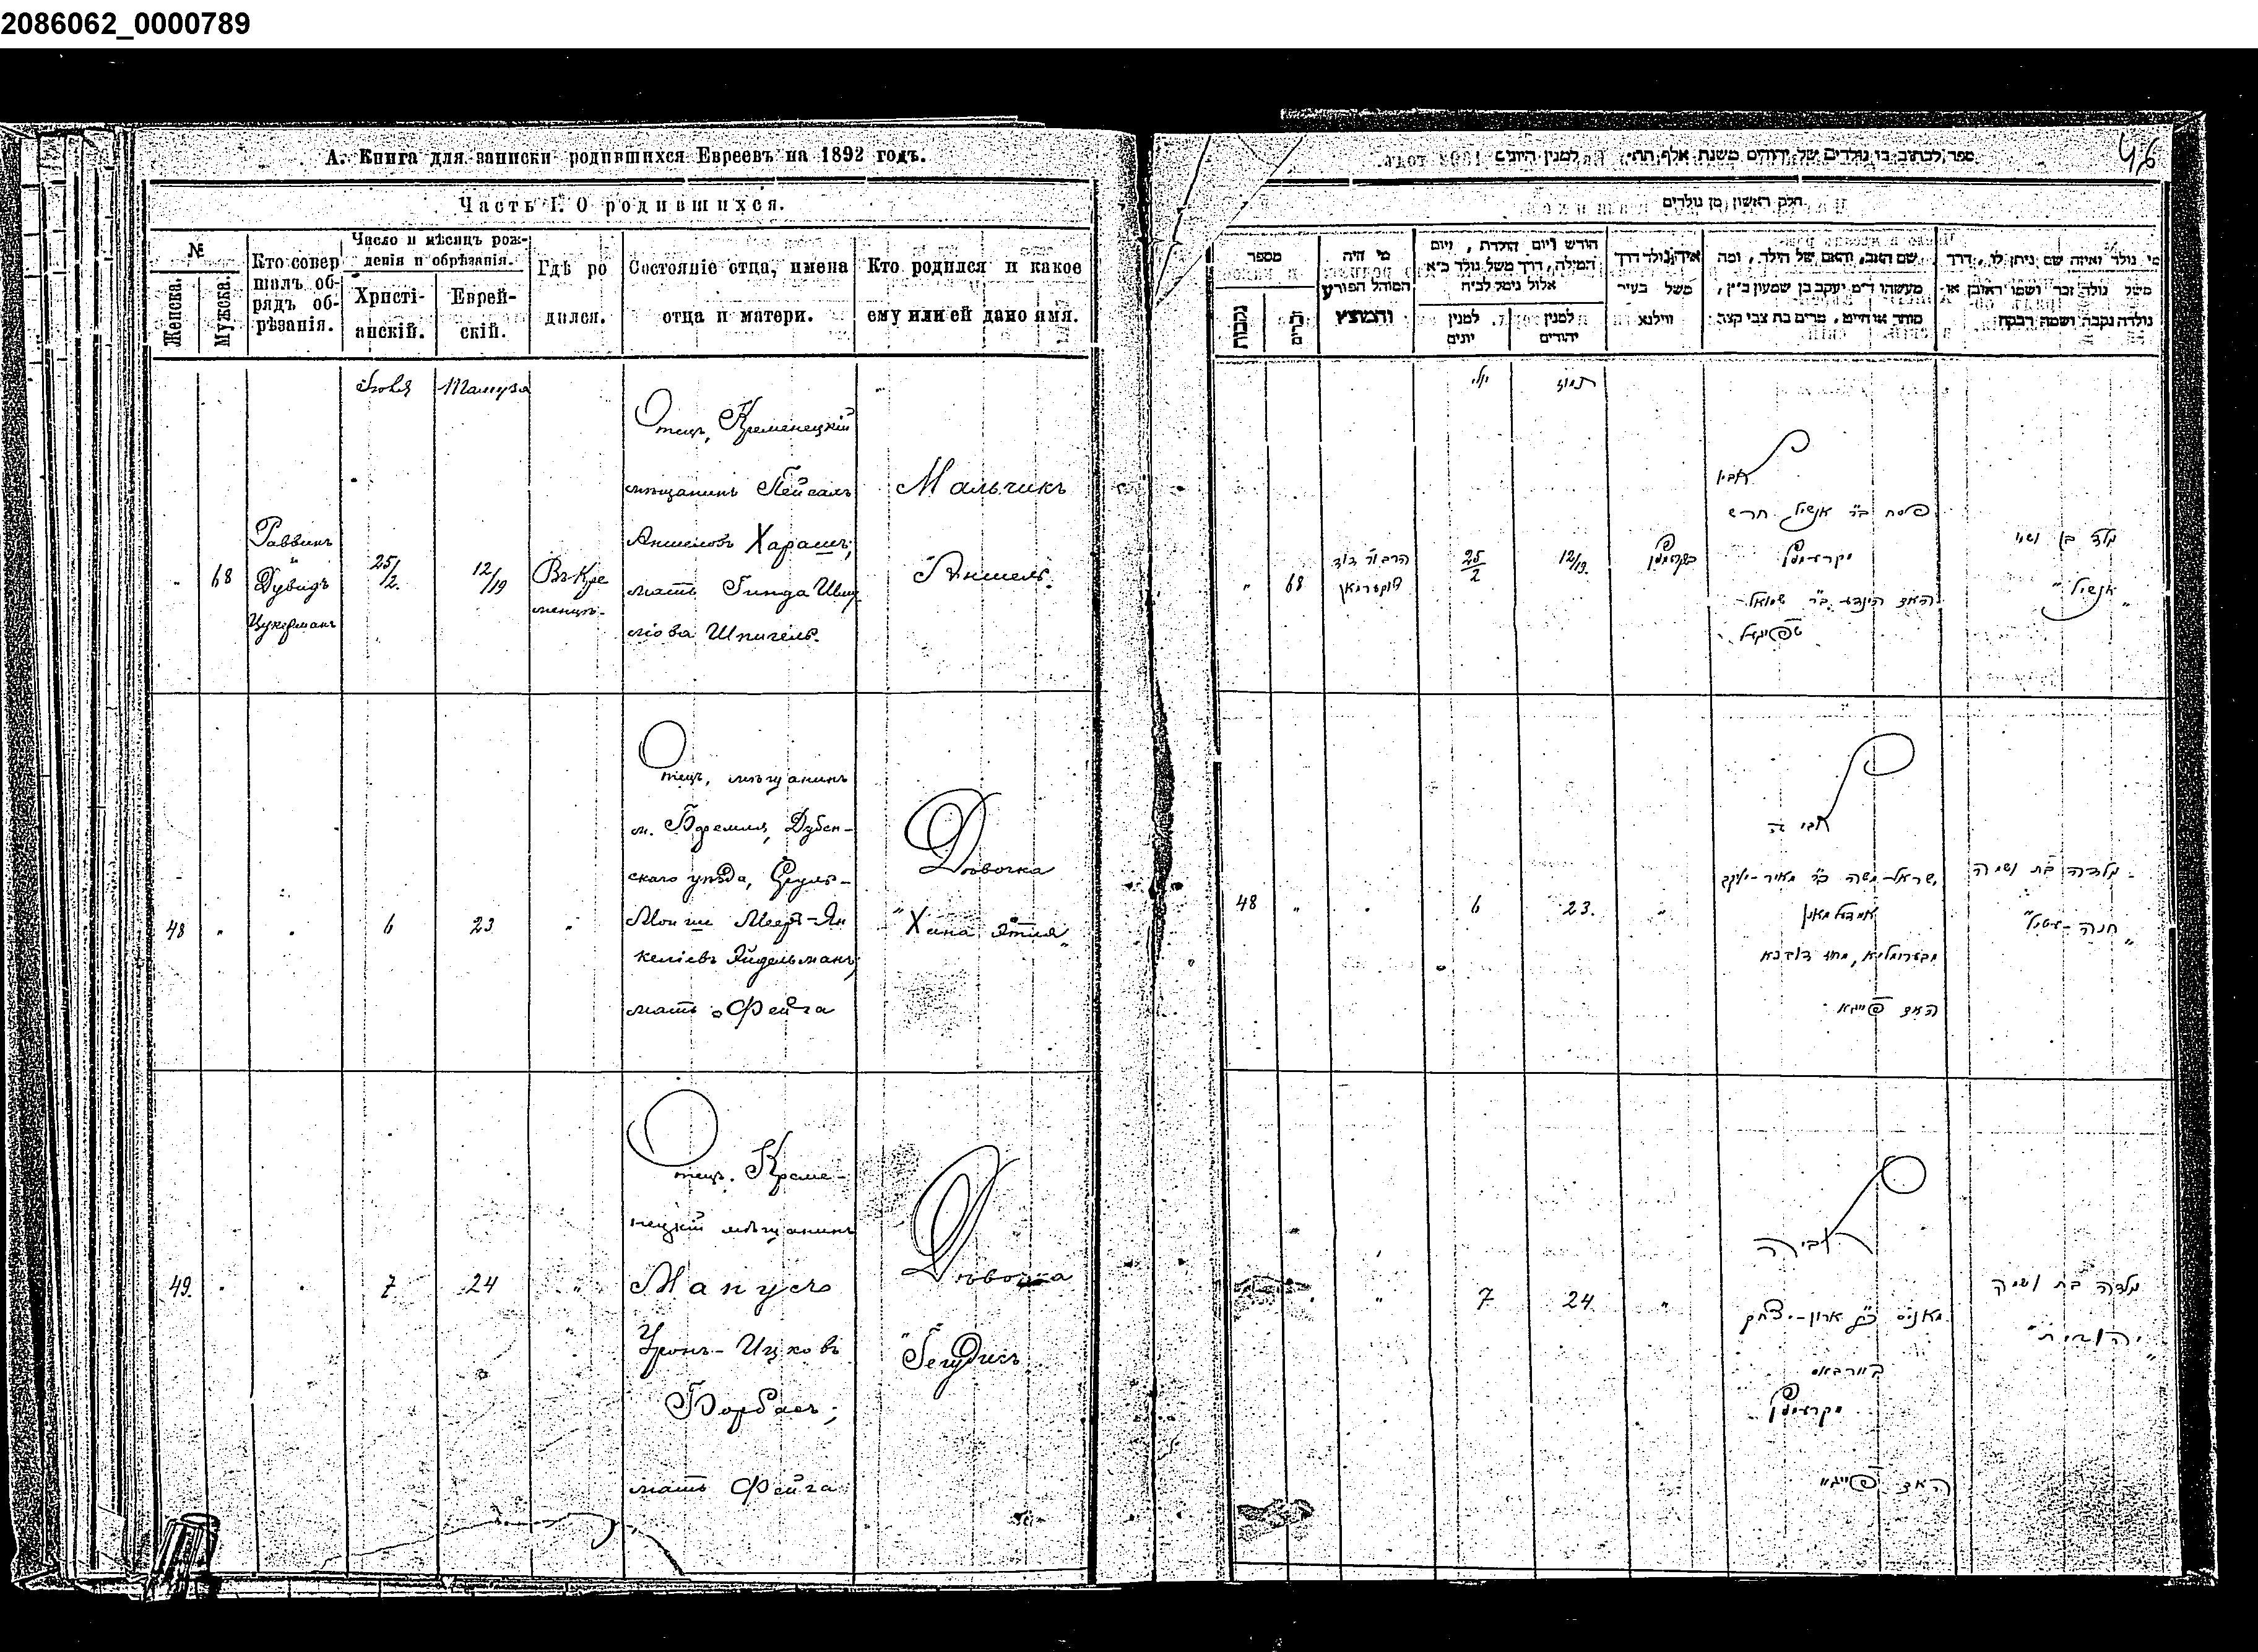 2086062_0000789
А. Книга для записки родившихся Евреевъ на 1892 годъ.
Часть I. О родившихся.
№
Женска.
Мужска.
Кто совер
шалъ об-
рядъ об-
рѣзанія.
Число и мѣсяцъ рож-
денія и обрѣзанія.
Христі-
анскій.
Еврей-
скій.
Гдѣ ро
дился.
Состояніе отца, имена
отца и матери.
Кто родился и какое
ему или ей дано имя.
Іюля
Тамуза
68
Раввинъ
Дувидъ
Цукерманъ
25/2.
12/19
Въ Кре
менцѣ.
Отецъ, Кременецкій
мѣщанинъ Пейсахъ
Аншелевъ Харашъ;
мать Гинда Шму
лева Шпигель.
Мальчикъ
"Аншель"
48
"
"
6
23
"
Отецъ, мѣщанинъ
м. Боремля, Дубен-
скаго уѣзда, Сруль-
Мойше Мееръ-Ян
келевъ Айдельманъ;
мать Фейга
Дѣвочка
"Хана Этля"
49.
"
"
7
24
"
Отецъ. Креме-
нецкій мѣщанинъ
Манусъ
Уронъ-Ицковъ
Борбасъ;
мать Фейга
Дѣвочка
"Гегудисъ"
46
חלק ראשון מן נולדים
מספר
נקבות
זכרים
מי היה
המוהל הפורע
והמוצץ
חודש ויום הולדת, ויום
המילה, דרך משל נולד כ״א
אלול נימל לכ״ח
למנין
יונים
למנין
יהודים
איה נולד דרך
משל בעיר
ווילנא
שם האב, והאם של הילד, ומה
מעשהו ד״מ יעקב בן שמעון כ״ץ,
סוחר או חייט, מרים בת צבי קצב
מי נולד ואיזה שם ניתן לו, דרך
משל נולד זכר ושמו ראובן או
נולדה נקבה ושמה רבקה
יולי
תמוז
"
68
הרב ור׳ דוד
צוקערמאן
25/2
12/19.
בקרעמניץ
אביו
פסח ב״ר אנשיל חרש
מקרעמניץ
האם הינדע ב״ר שמואל
שפיגעל
נולד בן ושמו
"אנשיל"
48
"
"
6
23.
"
אביה
ישראל-משה ב״ר מאיר-יענקב
אידעלמאן
האם פייגא
נולדה בת ושמה
"חנה-עטיל"
"
"
7
24
"
אביה
מאניס ב״ר ארון-יצחק
בארבאס
מקרעמניץ
האם פייגא
נולדה בת ושמה
"יהודית"